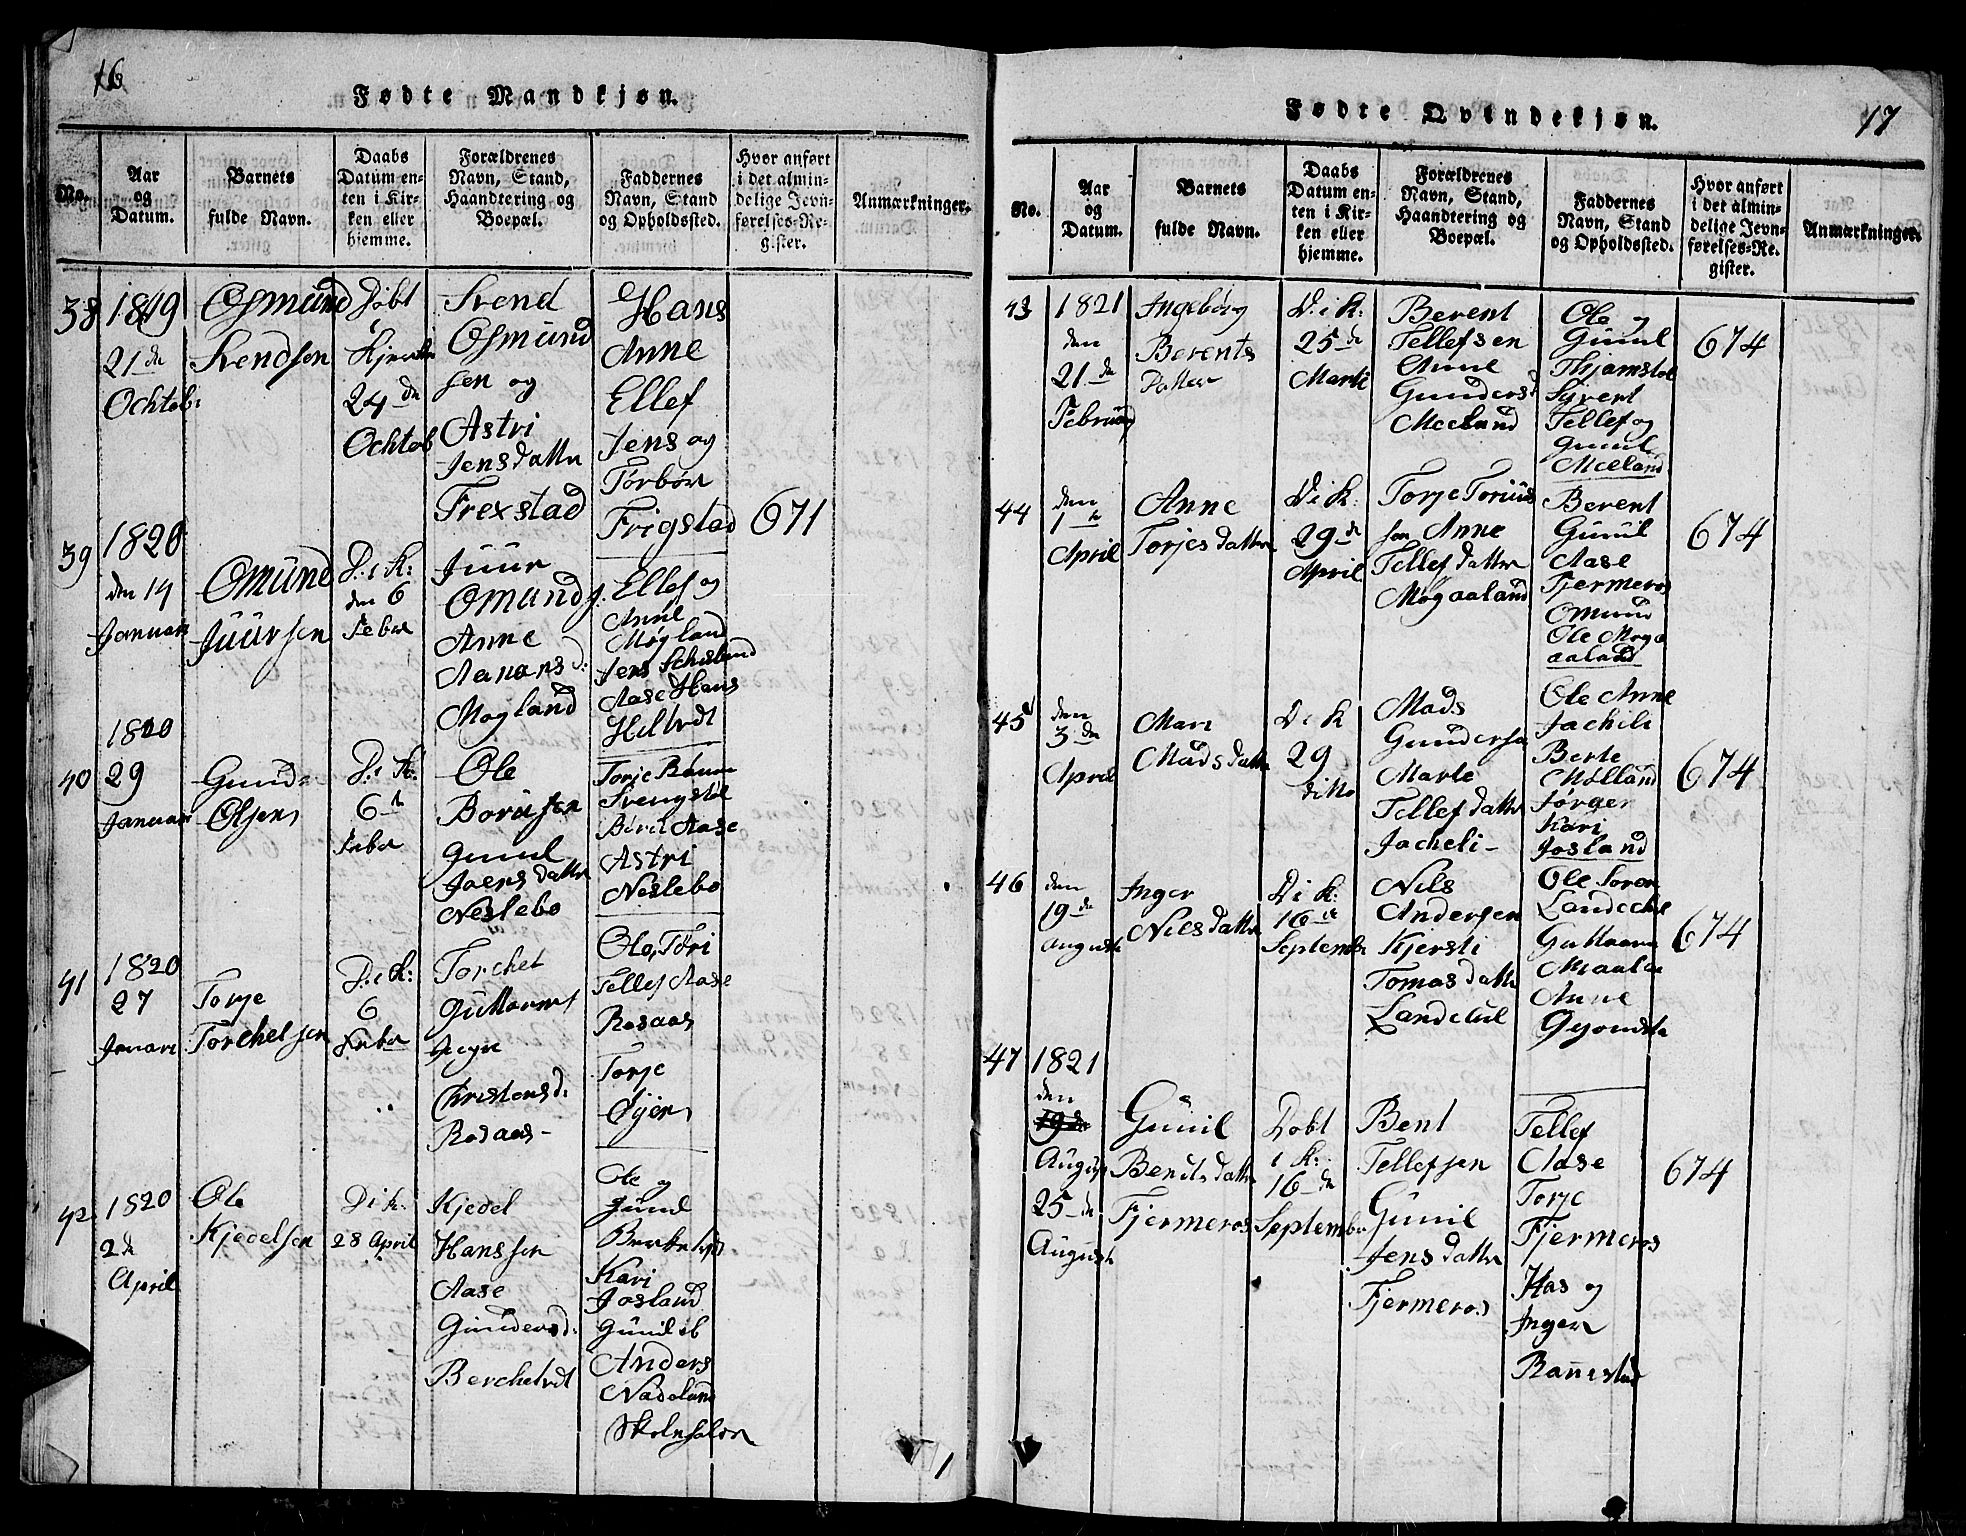 16
Fødte Mandkjøn.
No.
Aar
og
Datum.
Barnets
fulde Navn.
Daabs
Datum en-
ten i Kir-
ken eller
hjemme.
Forældrenes
Navn, Stand,
Haandtering og
Boepæl.
Faddernes
Navn, Stand
og Opholdssted.
Hvor anført
i det almin-
delige Jevn-
førelses-Re-
gister.
Anmærkninger.
38
1819
21 de
Ochtob:
Osmund
Svendsen
Døbt
24 de
Ochtob
Svend
Osmund
sen og
Astri
Jensdatter
Frexstad
Hans
Anne
Ellef
Jens og
Torbør
Frigstad
671
39
1820
den 14
Januari
Omund
Juursen
D: i K:
den 6
Feber
Juur
Omund
Anne
Aanans d:
Mogland
Ellef og
Anne
Mogland
Jens
Aase Hans
40
1820
29
Januari
Gund
Olsen
D: i K:
6 t
Feber
Ole
Gunil
Jaensdatter
Neslebo
Torje
Aase
Astri
Neslebo
41
1820
27
Januari
Torje
Torchelsen
D: i K:
6
Feber
Torchel
Christensd:
Rosaas
Ole, Tøri
Tellef Aase
Rosaas
Torje
Øyen
42
1820
2 de
April
Ole
Kjedelsen
D i k:
28 April
Kjedel
Hanssen
Aase
Gundersd:
Ole og
Gunil
Kari
Josland
Gunil
Anders
17
Fødte Qvindekjøn.
No.
Aar
og
Datum.
Barnets
fulde Navn.
Daabs
Datum en-
ten i Kir-
ken eller
hjemme.
Forældrenes
Navn, Stand,
Haandtering og
Boepæl.
Faddernes
Navn, Stand
og Opholdssted.
Hvor anført
i det almin-
delige Jevn-
førelses-Re-
gister.
Anmærkninger.
43
1821
den
21 de
Februari
Ingeborg
Berents
Datter
D. i k:
25 de
Marti
Berent
Tellefsen
Anne
Gundersd
Meeland
Ole og
Gunil
Sivert
Tellef og
Gunil
Meeland
674
44
den
1 te
April
Anne
Torjesdatter
D i k
29 de
April
Torje
sen Anne
Tellefdatter
Mogaaland
Berent
Gunil
Aase
Fjermeros
Omund
Ole Moga
aaland
674
45
den
3 de
April
Mari
Madsdatter
D i k
29
ditto
Mads
Gundersen
Marte
Tellefdatter
Jacheli
Ole Anne
Jacheli
Berte
Mølland
Jørgen
Kari
Josland
674
46
den
19 de
Auguste
Inger
Nilsdatter
D i k:
16 de
Septembr
Nils
Andersen
Kjersti
Tomasdatter
Ole Soren
Anne
674
47
1821
den
Augus
25 de
August
Gunil
Bentsdatter
Fjermeros
Dobt
i K:
16 de
Septembr
Bent
Tellefsen
Gunil
Jensdatter
Fjermeros
Tellef
Aase
Torje
Fjermeros
Has og
Inger
Rannestad
674